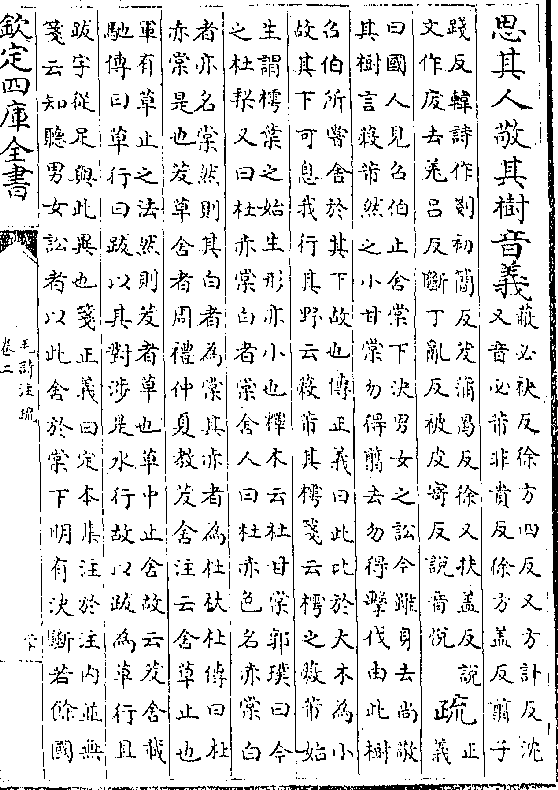 思其人敬其樹音義蔽必袂反徐方四反又方計反沈
又音必芾非貴反徐方蓋反翦子
踐反韓詩作剗初簡反茇蒲曷反徐又扶蓋反說
文作废去羌呂反斷丁亂反被皮寄反說音悅
疏正義
曰國人見召伯止舍棠下決男女之訟今雖身去尚敬
其樹言蔽芾然之小甘棠勿得翦去勿得擊伐由此樹
召伯所嘗舍於其下故也傳正義曰此比於大木為小
故其下可息我行其野云蔽芾其樗箋云樗之蔽芾始
生謂樗葉之始生形亦小也釋木云杜甘棠郭璞曰今
之杜棃又曰杜赤棠白者棠舍人曰杜赤色名赤棠白
者亦名棠然則其白者為棠其赤者為杜杕杜傳曰杜
赤棠是也茇草舍者周禮仲夏教茇舍注云舍草止也
軍有草止之法然則茇者草也草中止舍故云茇舍載
馳傳曰草行曰跋以其對涉是水行故以跋為草行且
跋字從足與此異也箋正義曰定本集注於注內並無
箋云知聽男女訟者以此舍於棠下明有決斷若餘國
欽定四庫全書
毛詩注疏
卷二